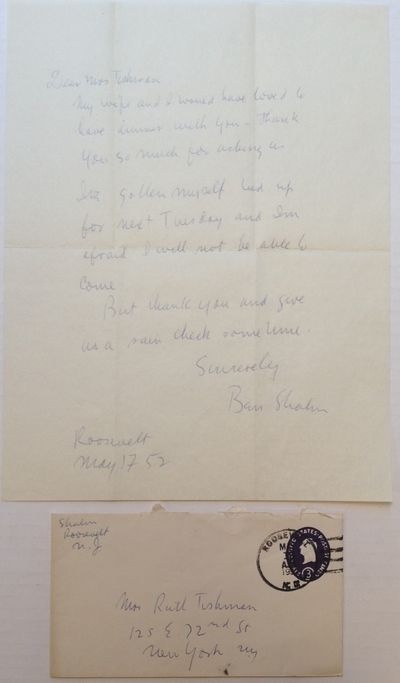 Dear Mrs Tishman
My wife and I would have loved to
have dinner with you – Thank
you so much for asking us
I've gotten myself tied up
for next Tuesday and I'm
afraid I will not be able to
come
But thank you and give
us a rain check sometime.
Sincereley
Ben Shahn
Roosevelt
May 17 52
Shahn
Roosevelt
N.J
ROOSEV
N.J.
UNITED STATES POSTAGE
3
Mrs Ruth Tishman
125 E. 72nd St
New York NY